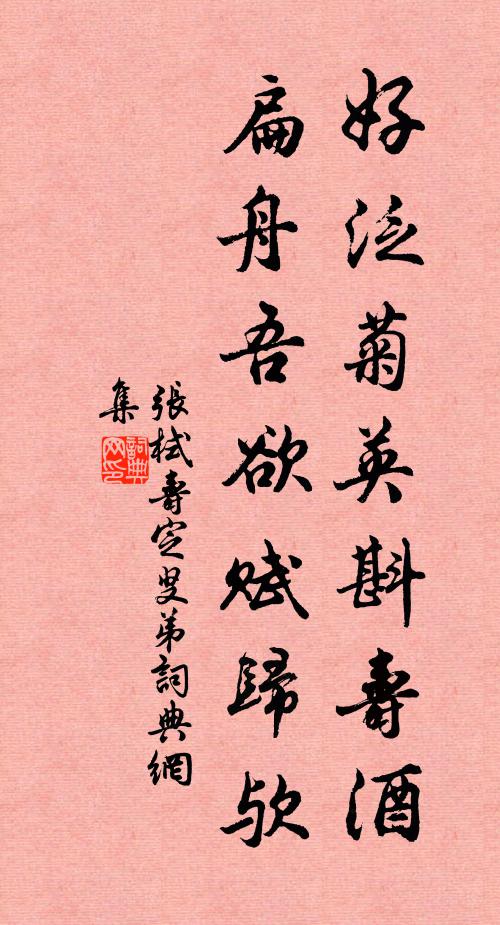 好泛菊英斟壽酒
扁舟吾欲賦歸歟
張栻壽定叟弟詞典網
集
詞典網印